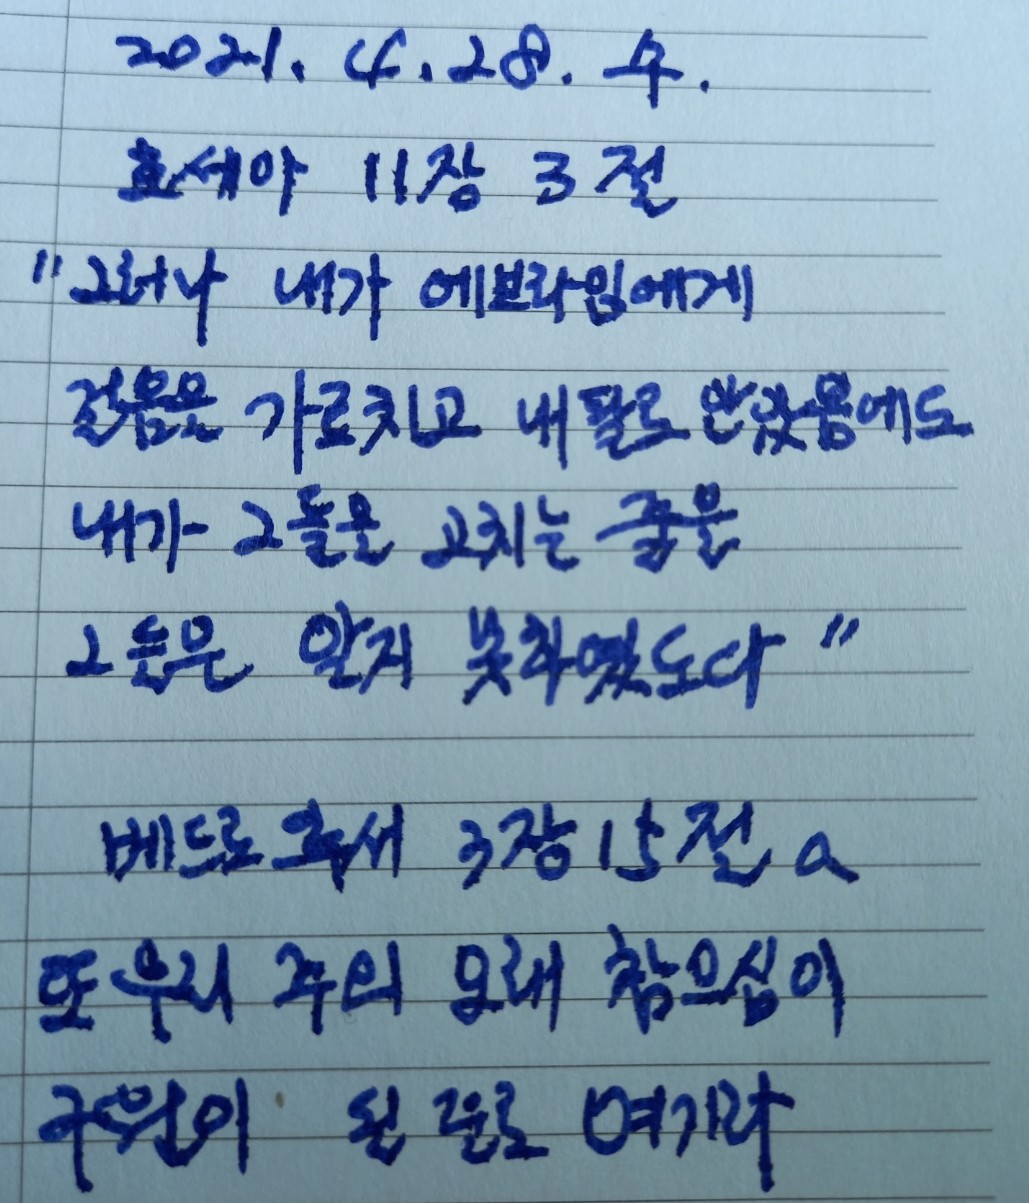 2021. 4. 28. 수.
호세아 11장 3절
"그러나 내가 에브라임에게
걸음을 가르치고 내 팔로 안았음에도
내가 그들을 고치는 줄을
그들은 알지 못하였도다"
베드로후서 3장 15절 a
또 우리 주의 오래 참으심이
구원이 될 줄로 여기라